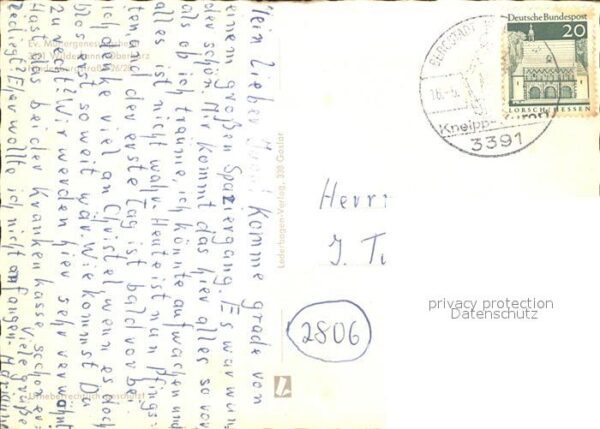 Mein lieber
Komme grade von
einem großen Spaziergang. Es war wun
der schön. Mir kommt das hier alles so vor
als ob ich träume, ich könnte aufwachen und
alles ist nicht wahr. Heute ist nun Pfings-
ten und der erste Tag ist bald vorbei.
Ich denke viel an Christel, wenn es doch
blos erst so weit wär. Wie kommst Du
zu recht? Wir werden hier sehr verwöhnt
Hast das bei der Krankenkasse schon er-
ledigt? Etwas wollte ich nicht anfangen
Viele Grüße
Ev. Müttergenesungsheim
3391 Wildemann/Oberharz
Urheberrechtlich geschützt!
Lederbogen-Verlag, 338 Goslar
BERGSTADT
16.-5.
Kneipp-Kuren
3391
Deutsche Bundespost
20
LORSCH/HESSEN
Herrn
J.
2806
privacy protection
Datenschutz